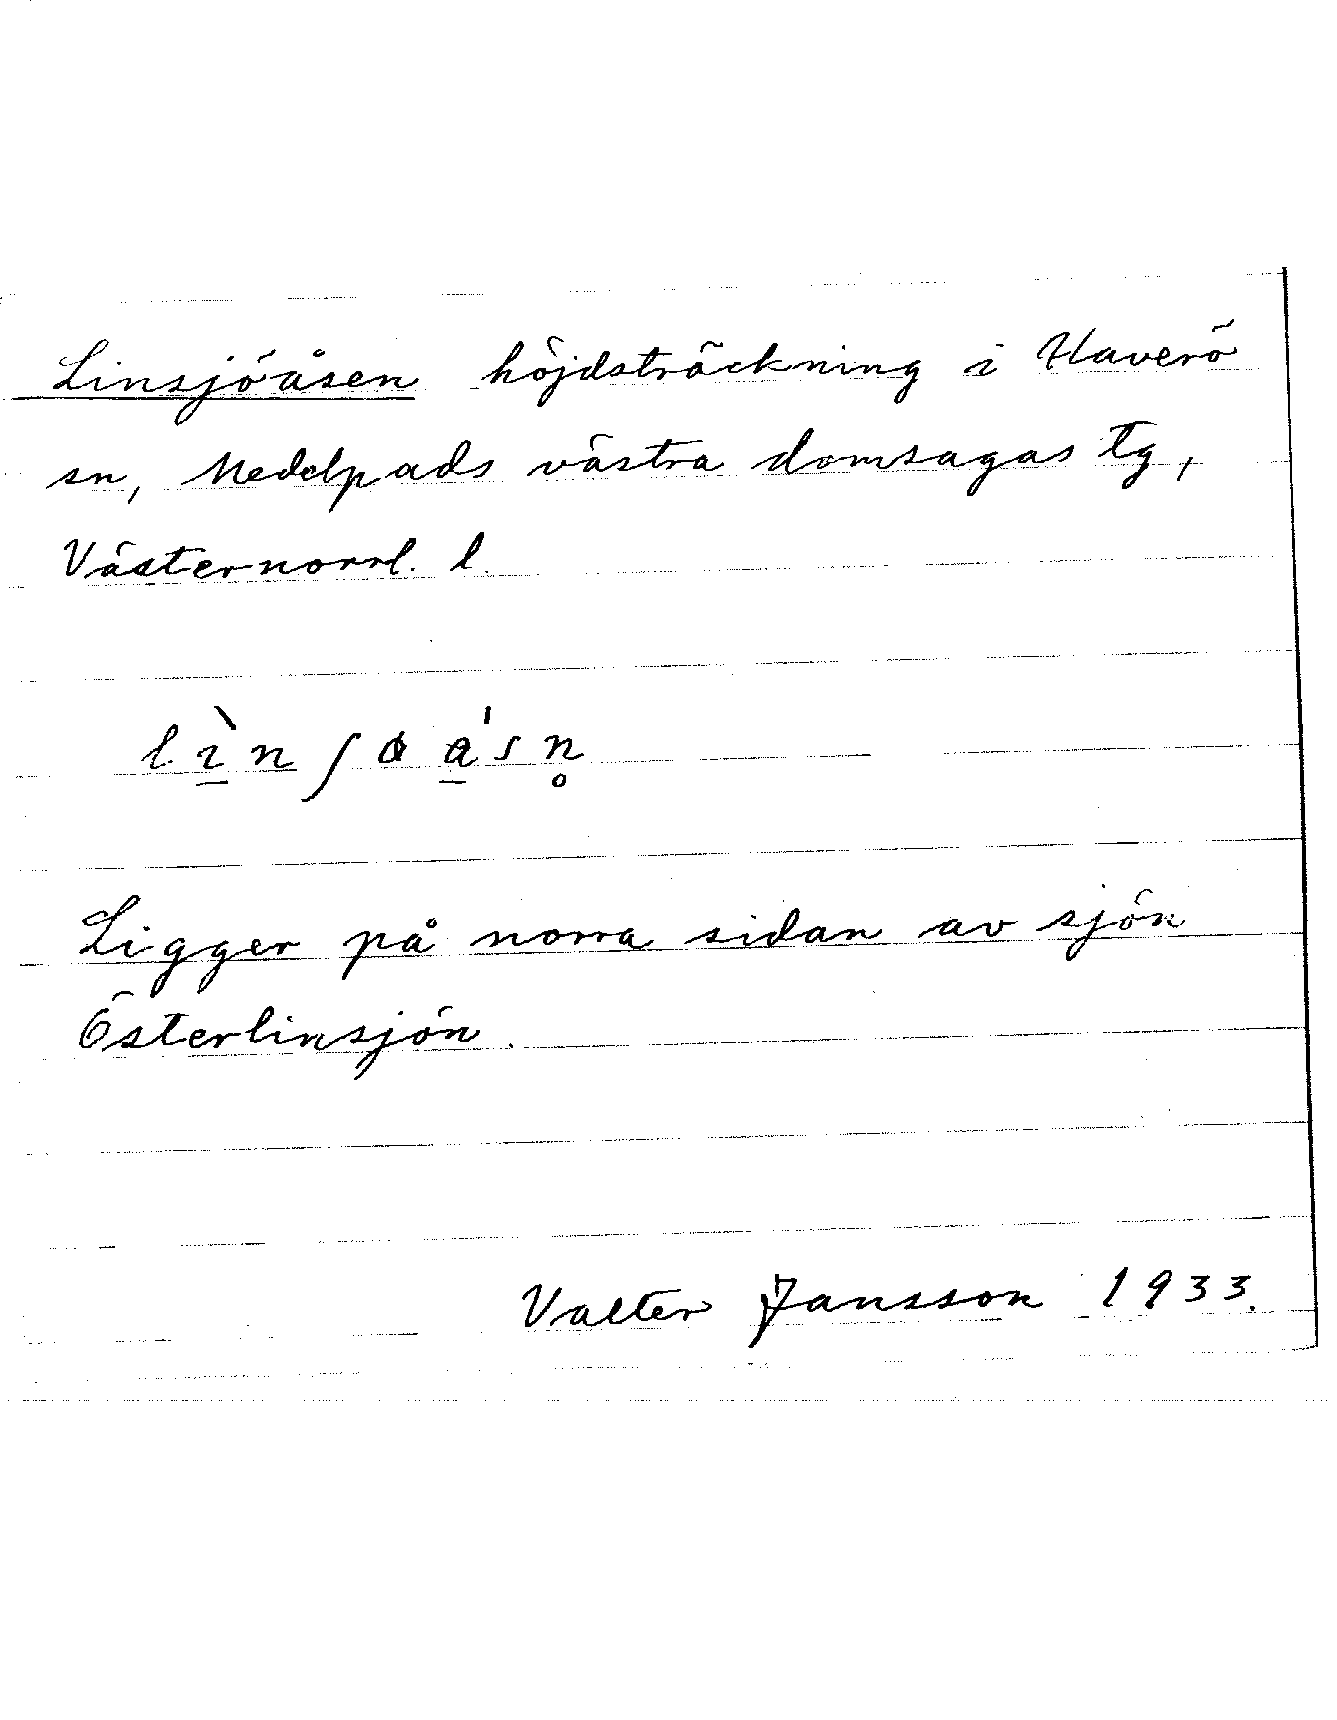 Linsjöåsen höjdsträckning i Haverö
sn, Medelpads västra domsagas tg,
Västernorrl. l.
lìnʃɵa̠ˈsn̥
Ligger på norra sidan av sjön
Österlinsjön.
Valter Jansson 1933.